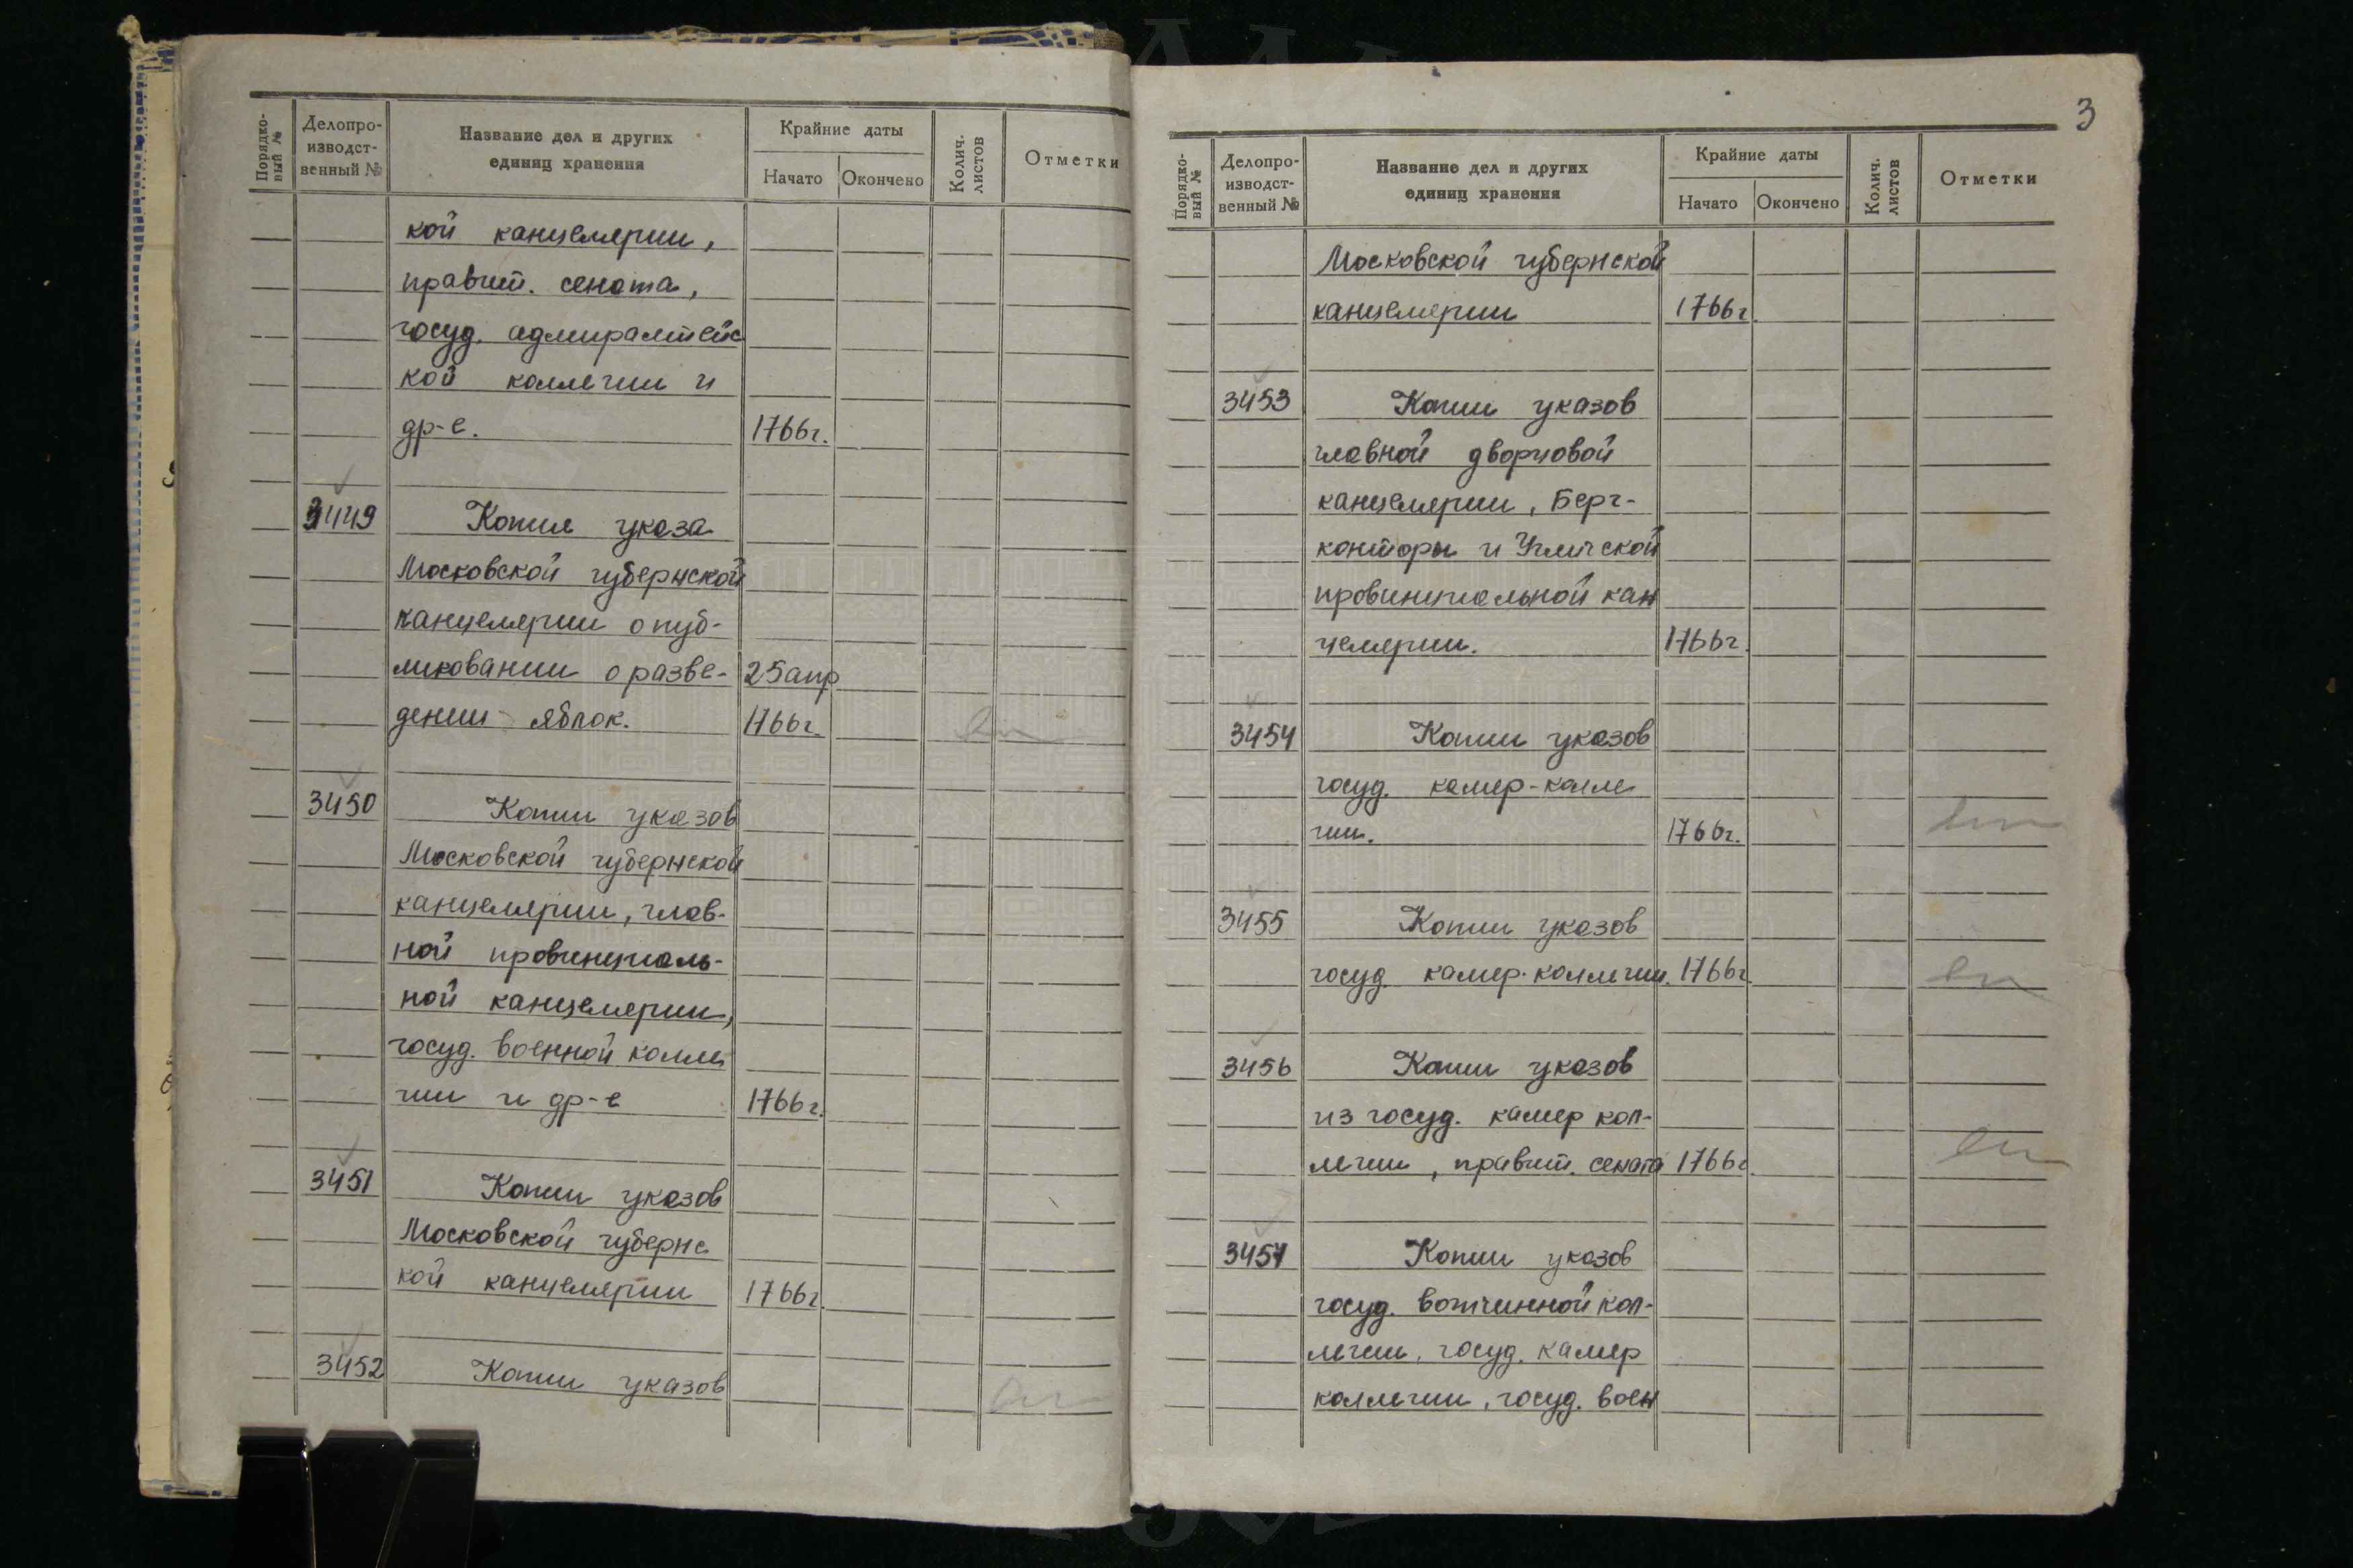 Порядко-
вый №
Делопро-
изводст-
венный №
Название дел и других
единиц хранения
Крайние даты
Начато
Окончено
Колич.
листов
Отметки
кой канцелярии,
правит. сената,
госуд. адмиралтейс
кой коллегии и
др-е. 1766г.
3449 Копия указа
Московской губернской
канцелярии о пуб-
ликовании о разве- 25 апр
дении яблок. 1766г.
3450 Копии указов
Московской губернской
канцелярии, глав-
ной провинциаль-
ной канцелярии,
госуд. военной колле
гии и др-е 1766г.
3451 Копии указов
Московской губернс
кой канцелярии 1766г.
3452 Копии указов
3
Порядко-
вый №
Делопро-
изводст-
венный №
Название дел и других
единиц хранения
Крайние даты
Начато
Окончено
Колич.
листов
Отметки
Московской губернской
канцелярии 1766г.
3453 Копии указов
главной дворцовой
канцелярии, Берг-
конторы и Угличской
провинциальной кан
целярии. 1766г.
3454 Копии указов
госуд. камер-колле
гии. 1766г.
3455 Копии указов
госуд. камер-коллегии. 1766г.
3456 Копии указов
из госуд. камер кол-
легии, правит. сената 1766г.
3457 Копии указов
госуд. вотчинной кол-
легии, госуд. камер
коллегии, госуд. воен